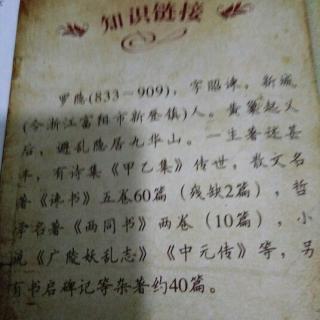 知识链接
罗隐(833-909)，字昭谏。新城
(今浙江富阳市新登镇)人。黄巢起义
后，避乱隐居九华山。一生著述甚
丰，有诗集《甲乙集》传世，散文名
著《谗书》五卷60篇（残缺2篇），哲
学名著《两同书》两卷（10篇），小
说《广陵妖乱志》《中元传》等，另
有书启碑记等杂著约40篇。